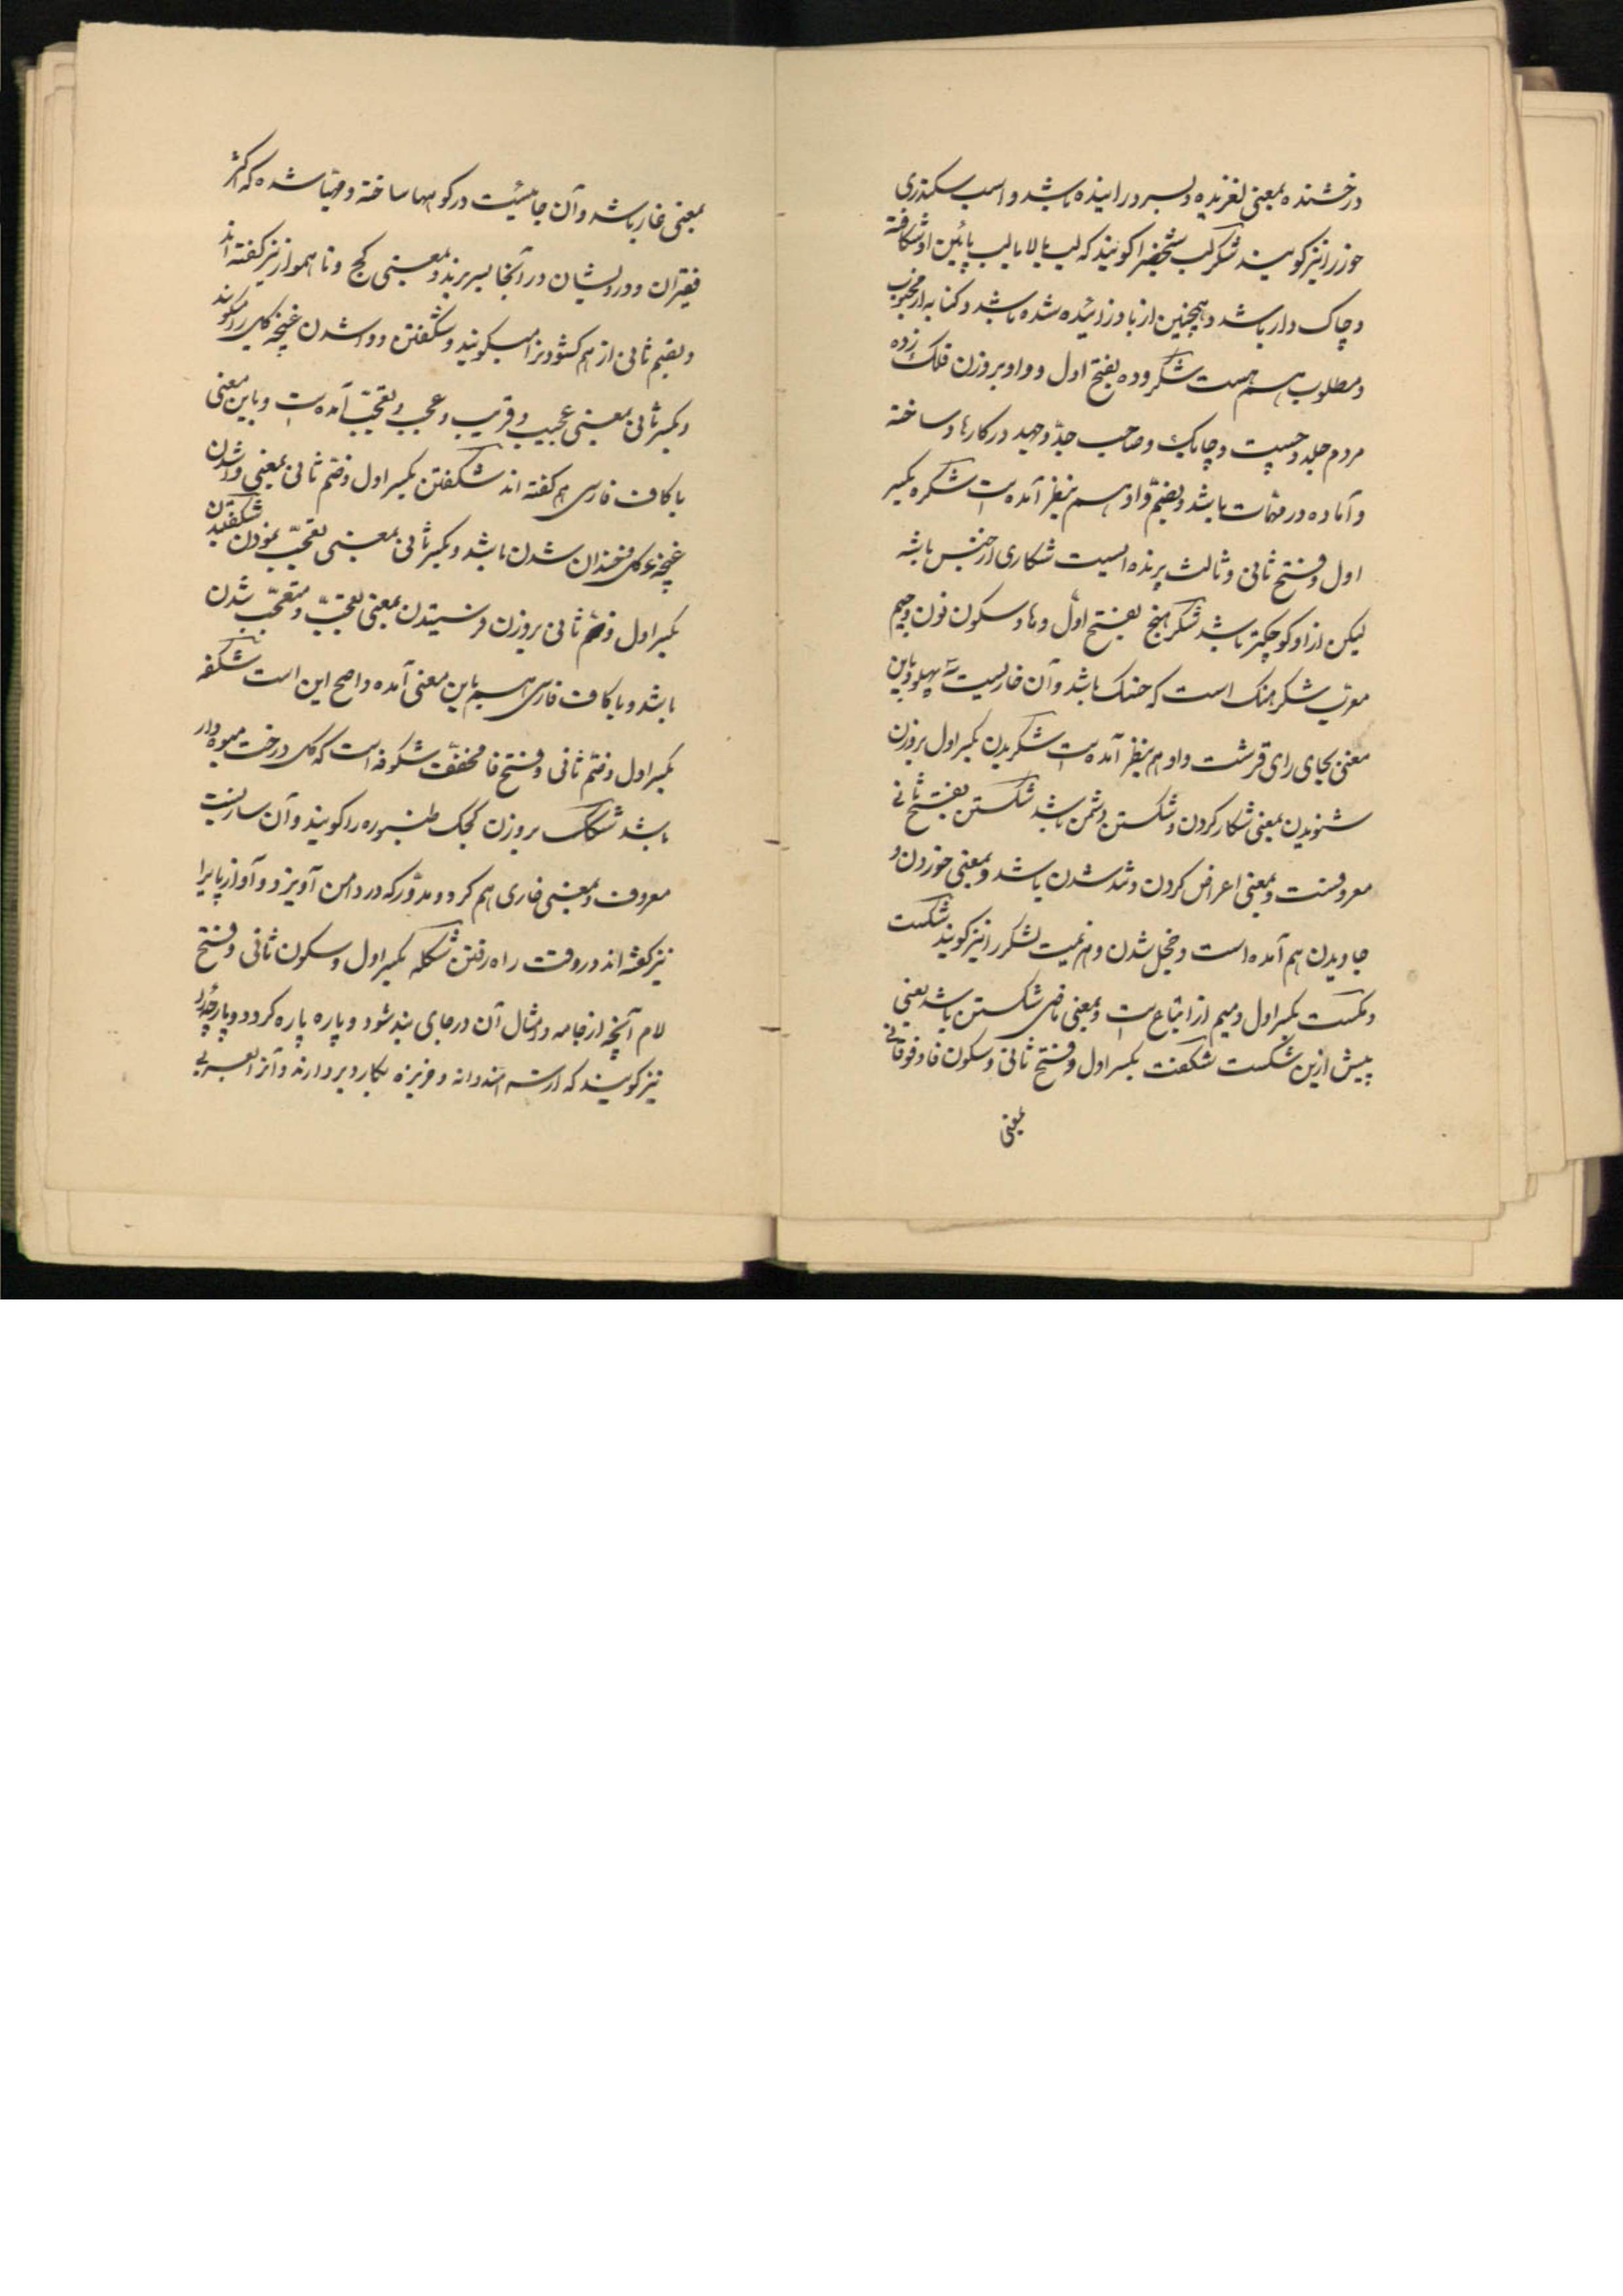 درخشنده بمعنی لغزیده و بسر درآینده باشد و اسب سکندری
خور را نیز کویند شکرلب شخصی را کویند که لب بالا یا لب پائین او شکافته
و چاک دار باشد و همچنین از مادر زائیده شده باشد و کنایه از محبوب
و مطلوب هم هست شکرده بفتح اول و واو بروزن فلک زده
مردم جلد و چست و چابک و صاحب جد و جهد در کارها و ساخته
و آماده در مهمات باشد و بضم واو هم بنظر آمده است شکره بکسر
اول و فتح ثانی و ثالث پرنده ایست شکاری از جنس باشه
لیکن از او کوچکتر باشد شکرهنج بفتح اول و ها و سکون نون و جیم
معرب شکرهنک است که خسک باشد و آن خاریست سه پهلو و باین
معنی بجای رای قرشت واو هم بنظر آمده است شکریدن بکسر اول بروزن
شنویدن بمعنی شکار کردن و شکستن دشمن باشد شکستن بفتح ثانی
معروفست و بمعنی اعراض کردن و تند شدن باشد و بمعنی خوردن و
جاویدن هم آمده است و خجل شدن و هزیمت لشکر را نیز کویند شکست
و مکست بکسر اول و میم از اتباع است و بمعنی ماضی شکستن باشد یعنی
پیش ازین شکست شکفت بکسر اول و فتح ثانی و سکون فا و فوقانی
بمعنی
بمعنی غار باشد و آن جائیست در کوهها ساخته و مهیا شده که اکثر
فقیران و درویشان در آنجا بسر برند و بمعنی کج و ناهموار نیز کفته اند
و بضم ثانی از هم کشودن را میکویند و شکفتن و وا شدن غنچه کل را کویند
و بکسر ثانی بمعنی عجیب و غریب و عجب و تعجب آمده است و باین معنی
با کاف فارسی هم کفته اند شکفتن بکسر اول و ضم ثانی بمعنی وا شدن
غنچه و کل و خندان شدن باشد و بکسر ثانی بمعنی تعجب نمودن شکفیدن
بکسر اول و ضم ثانی بروزن فرستیدن بمعنی تعجب و متعجب شدن
باشد و با کاف فارسی هم باین معنی آمده و اصح این است شکفه
بکسر اول و ضم ثانی و فتح فا مخفف شکوفه است که کل درخت میوه دار
باشد شکک بروزن کجک طنبوره را کویند و آن سازیست
معروف و بمعنی خاری هم کرد و مدور که در دامن آویزد و آواز پا را
نیز کفته اند در وقت راه رفتن شکله بکسر اول و سکون ثانی و فتح
لام آنچه از جامه و امثال آن در جای بند شود و پاره پاره کردد و پارچه را
نیز کویند که از هندوانه و خربزه بکارد بردارند و آنرا بعربی